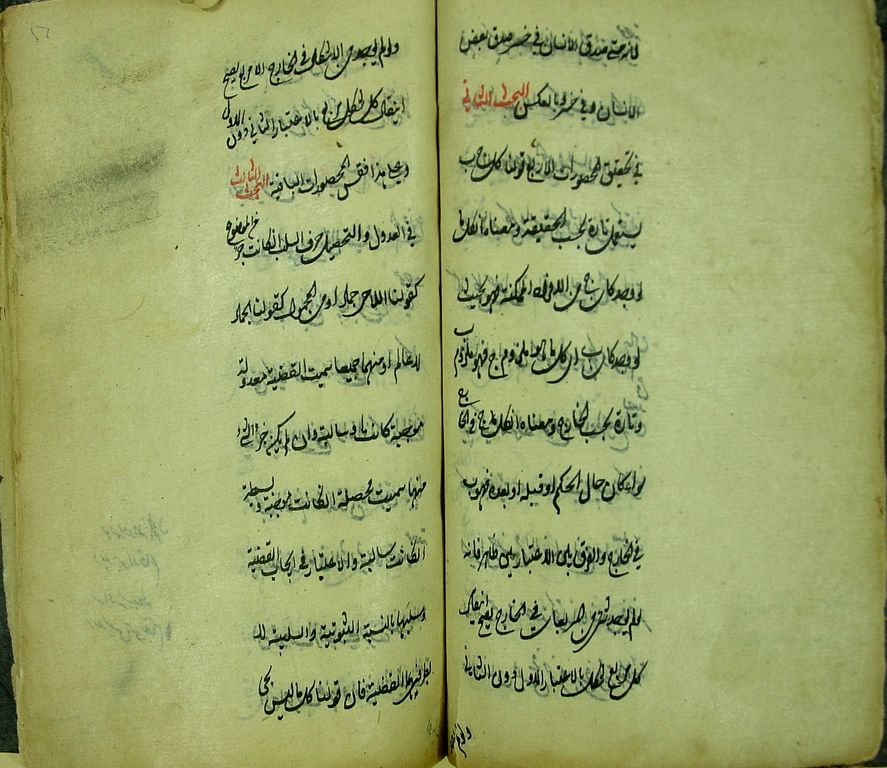 لانه متى صدق الانسان في خسر صدق بعض
الانسان في خسر وبالعكس البحث الثاني
في تحقيق المحصورات الاربع قولنا كل ج ب
يستعمل تارة بحسب الحقيقة ومعناه ان كل ما
لو وجد كان ج من الافراد الممكنة فهو بحيث
لو وجد كان ب اي كل ما هو ملزوم ج فهو ملزوم ب
وتارة بحسب الخارج ومعناه ان كل ج في الخارج
سواء كان حال الحكم او قبله او بعده فهو ب
في الخارج والفرق بين الاعتبارين ظاهر فانه
لو لم يوجد شيء من المربعات في الخارج يصح ان يقال
كل مربع شكل بالاعتبار الاول دون الثاني
ولو لم
ولو لم يوجد من الاشكال في الخارج الا المربع يصح
ان يقال كل شكل مربع بالاعتبار الثاني دون الاول
وعلى هذا فقس المحصورات الباقية البحث الثالث
في العدول والتحصيل حرف السلب ان كانت جزء الموضوع
كقولنا اللاحي جماد او من المحمول كقولنا الجماد
لا عالم او منهما جميعا سميت القضية معدولة
موجبة كانت او سالبة وان لم يكن جزءا لشيء
منهما سميت محصلة ان كانت موجبة وبسيطة
ان كانت سالبة والاعتبار في ايجاب القضية
وسلبها بالنسبة الثبوتية والسلبية لا
بطرفي القضية فان قولنا كل ما ليس بحي